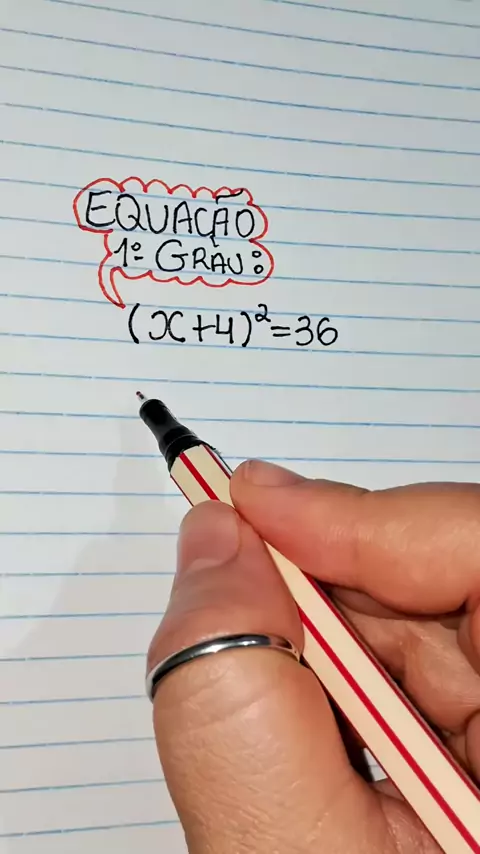 EQUAÇÃO
1º GRAU:
(x+4)²=36